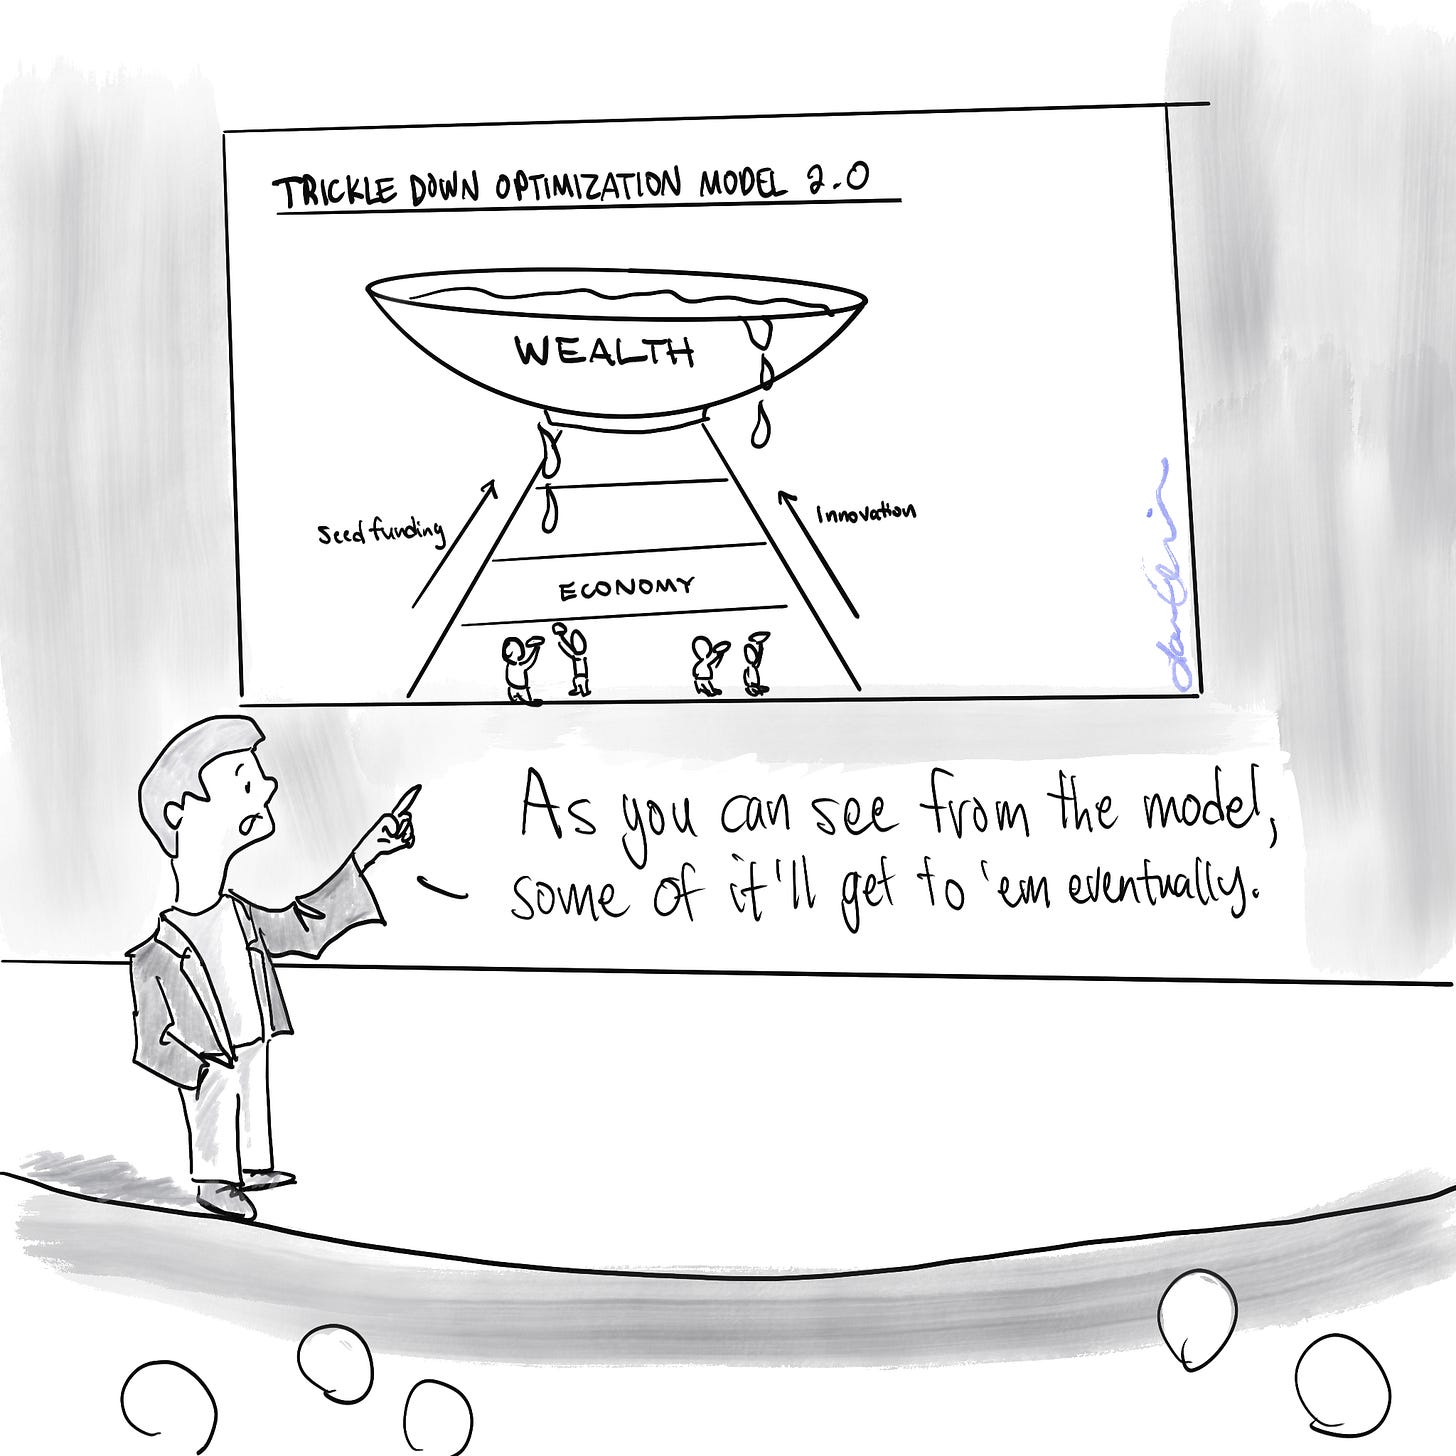 TRICKLE DOWN OPTIMIZATION MODEL 2.0
WEALTH
Seed funding
Innovation
ECONOMY
As you can see from the model,
some of it'll get to 'em eventually.